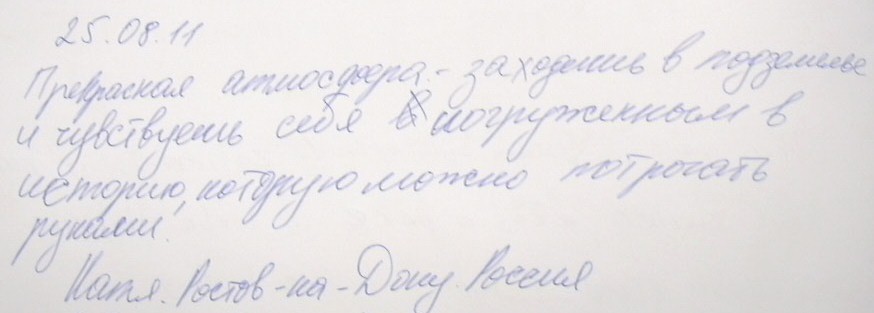 25.08.11
Прекрасная атмосфера - заходишь в подземелье
и чувствуешь себя погруженным в
историю, которую можно потрогать
руками.
Катя. Ростов-на-Дону. Россия